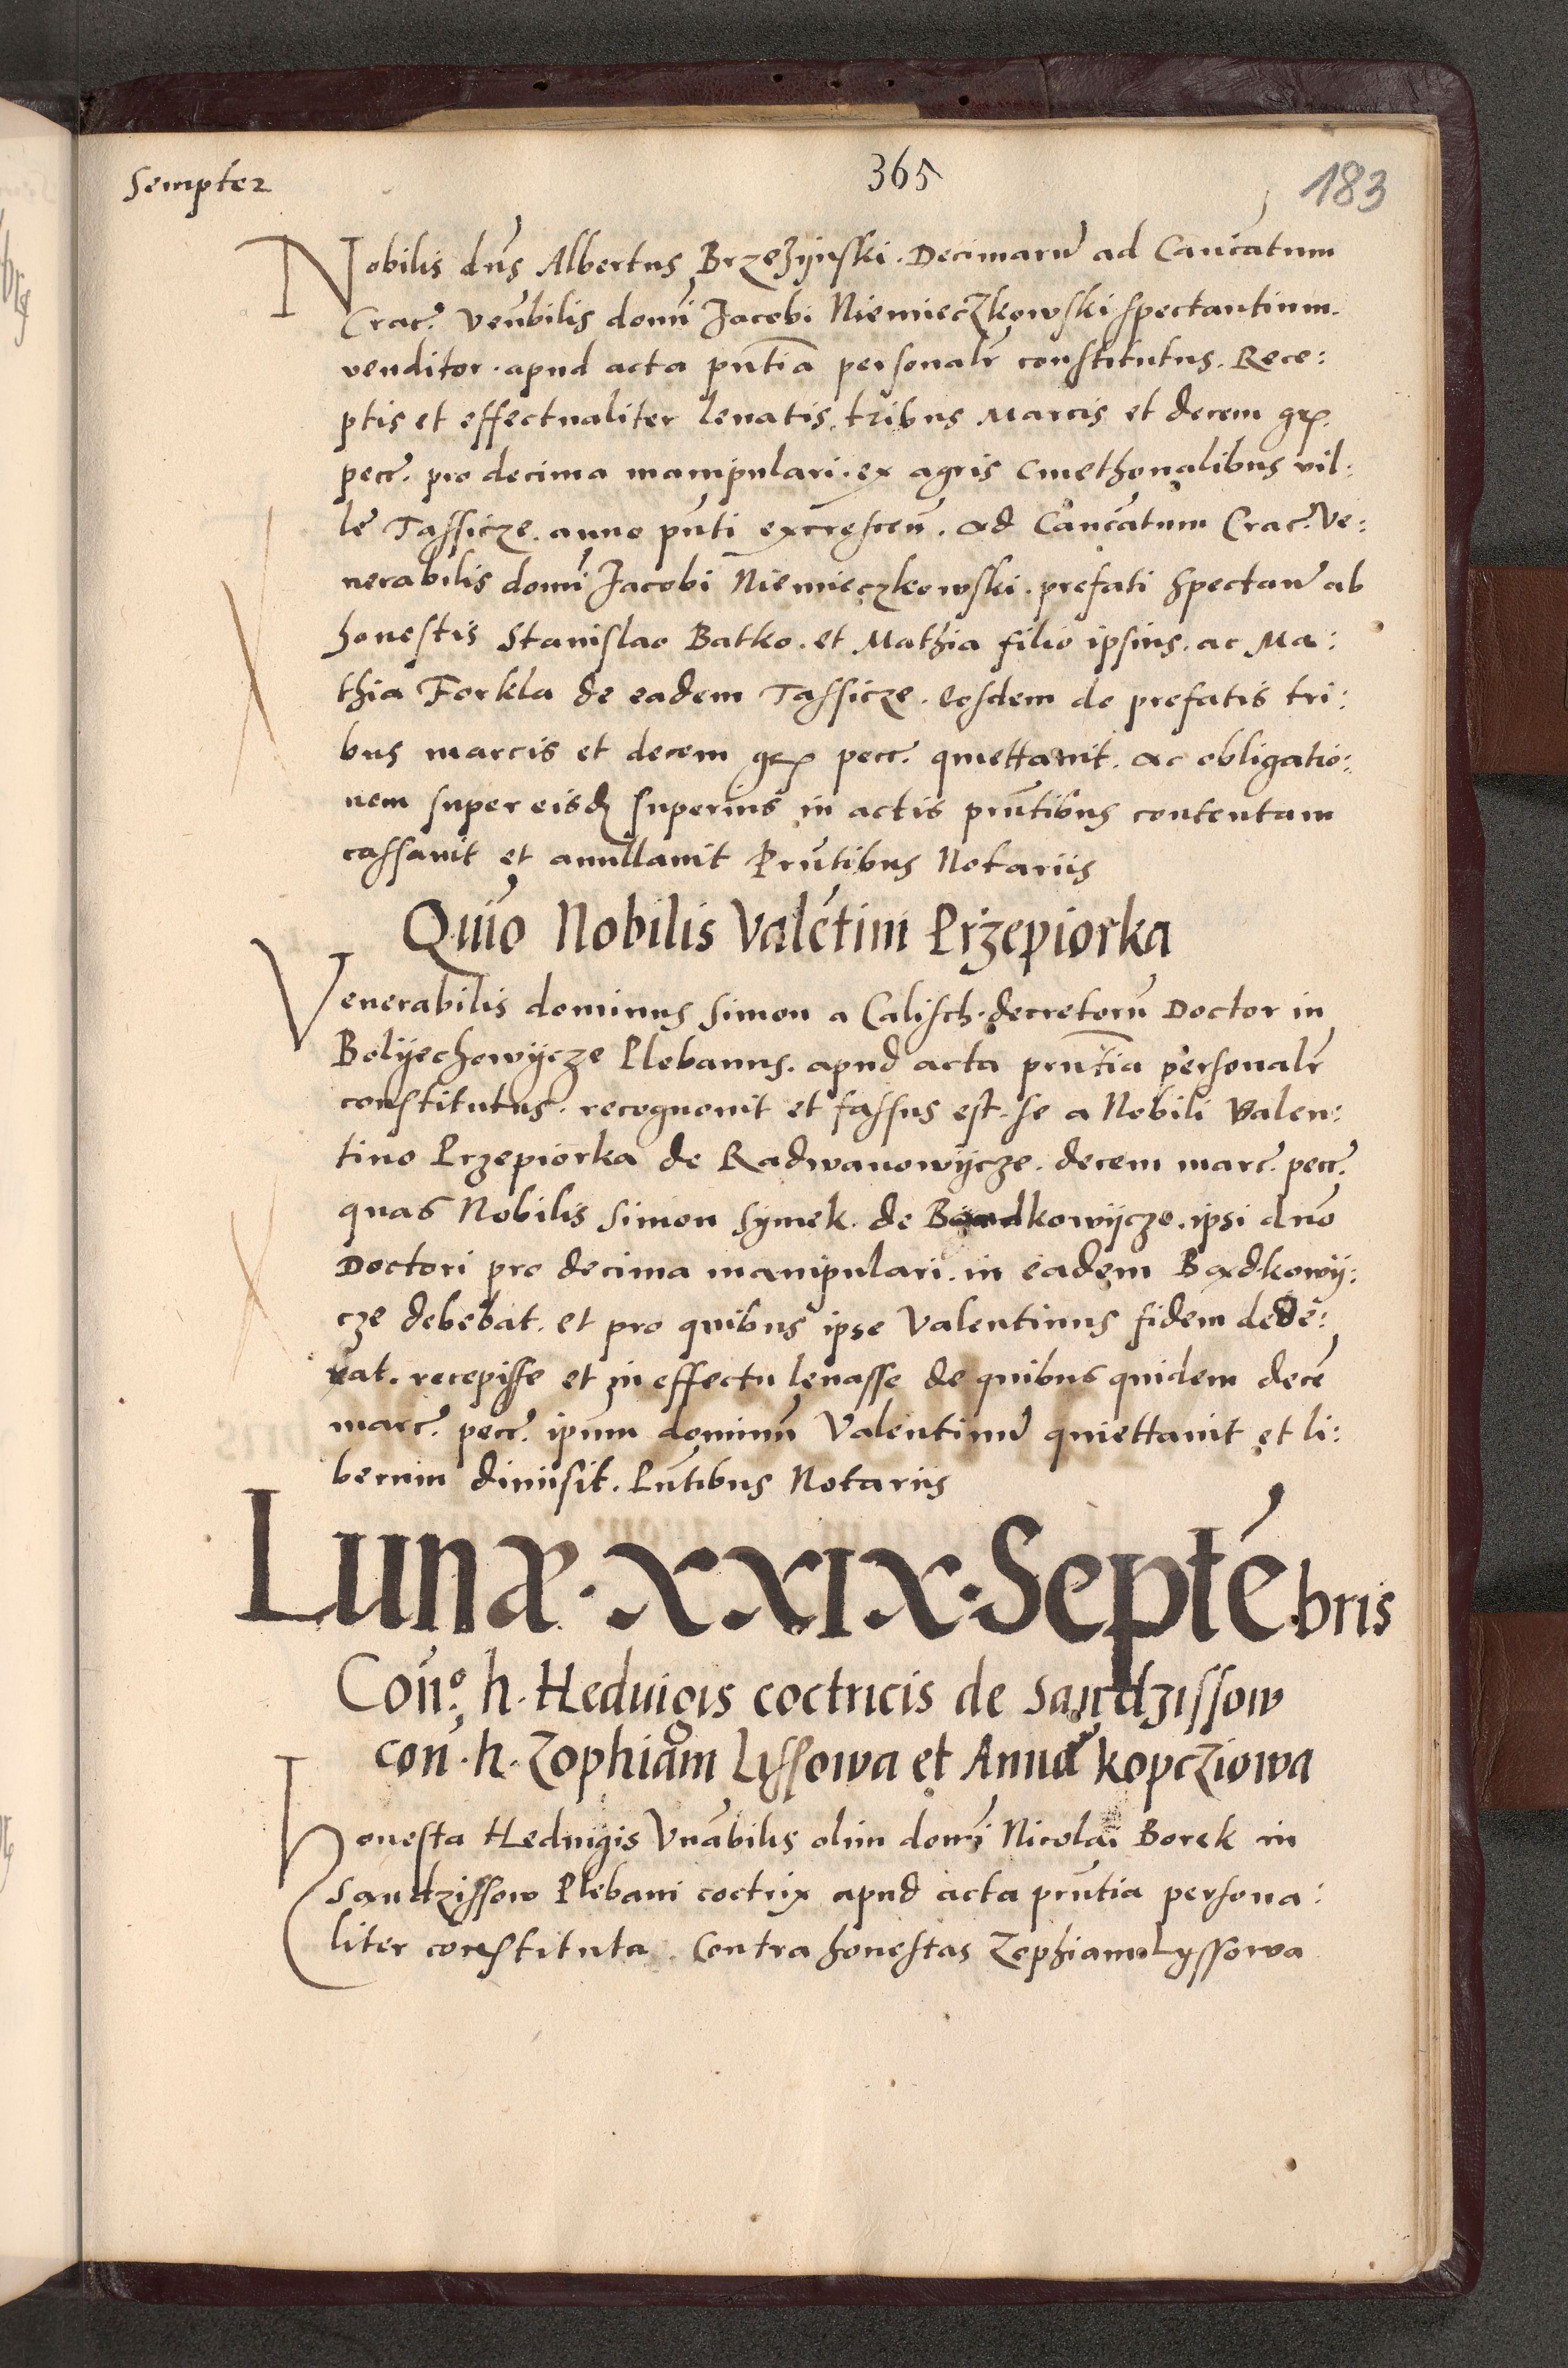 Sempter
365
183
Nobilis dns Albertus Brzezijnski. Decimarũ ad Canc̃atum
Crac̃. Veñbilis domi Jacobi Niemieczkowski spectantium.
venditor. apud acta pñtia personalr̃ constitutus. Rece:
ptis et effectualiter levatis. tribus Marcis et decem gr.
pecc̃. pro decima manipulari. ex agris Cmethonalibus vil:
le Tassicze. anno pñti excresceñ. ad Canc̃atum Crac̃. Ve:
nerabilis domi Jacobi Niemieczkowski. prefati spectañ ab
honestis Stanislao Batko. et Mathia filio ipsius. ac Ma:
thia Forkla de eadem Tassicze. Eosdem de prefatis tri:
bus marcis et decem gr pecc̃. quiettavit. ac obligatio:
nem super eisd superius in actis pñtibus contentam
cassavit et annullavit Pñtibus Notariis
Quiõ Nobilis Valẽtini Przepiorka
Venerabilis dominus Simon a Calisch. decretorũ Doctor in
Bolyechowycze Plebanus. apud acta pñtia personalr̃
constitutus. recognovit et fassus est. se a Nobili Valen:
tino Przepiorka de Radwanowycze. decem marc̃. pecc̃.
quas Nobilis Simon Symek. de Bandkowycze. ipsi dño
Doctori pro decima manipulari. in eadem Badkowy:
cze debebat. et pro quibus ipse Valentinus fidem dede:
rat. recepisse et in effectu levasse de quibus quidem decẽ
marc̃. pecc̃. ipsum dominũ Valentinũ quiettavit et li:
berum dimisit. Pñtibus Notariis
Lunæ. XXIX. Septẽbris
Coñ. h. Heduigis coctricis de Sandzissow
con. h. Zophiam Lissowa et Annã kopcziowa
honesta Heduigis Vnãbilis olim domi Nicolai Borek in
Sandzissow Plebani coctrix apud acta pñtia persona:
liter constituta. Contra honestas Zophiam Lyssowa